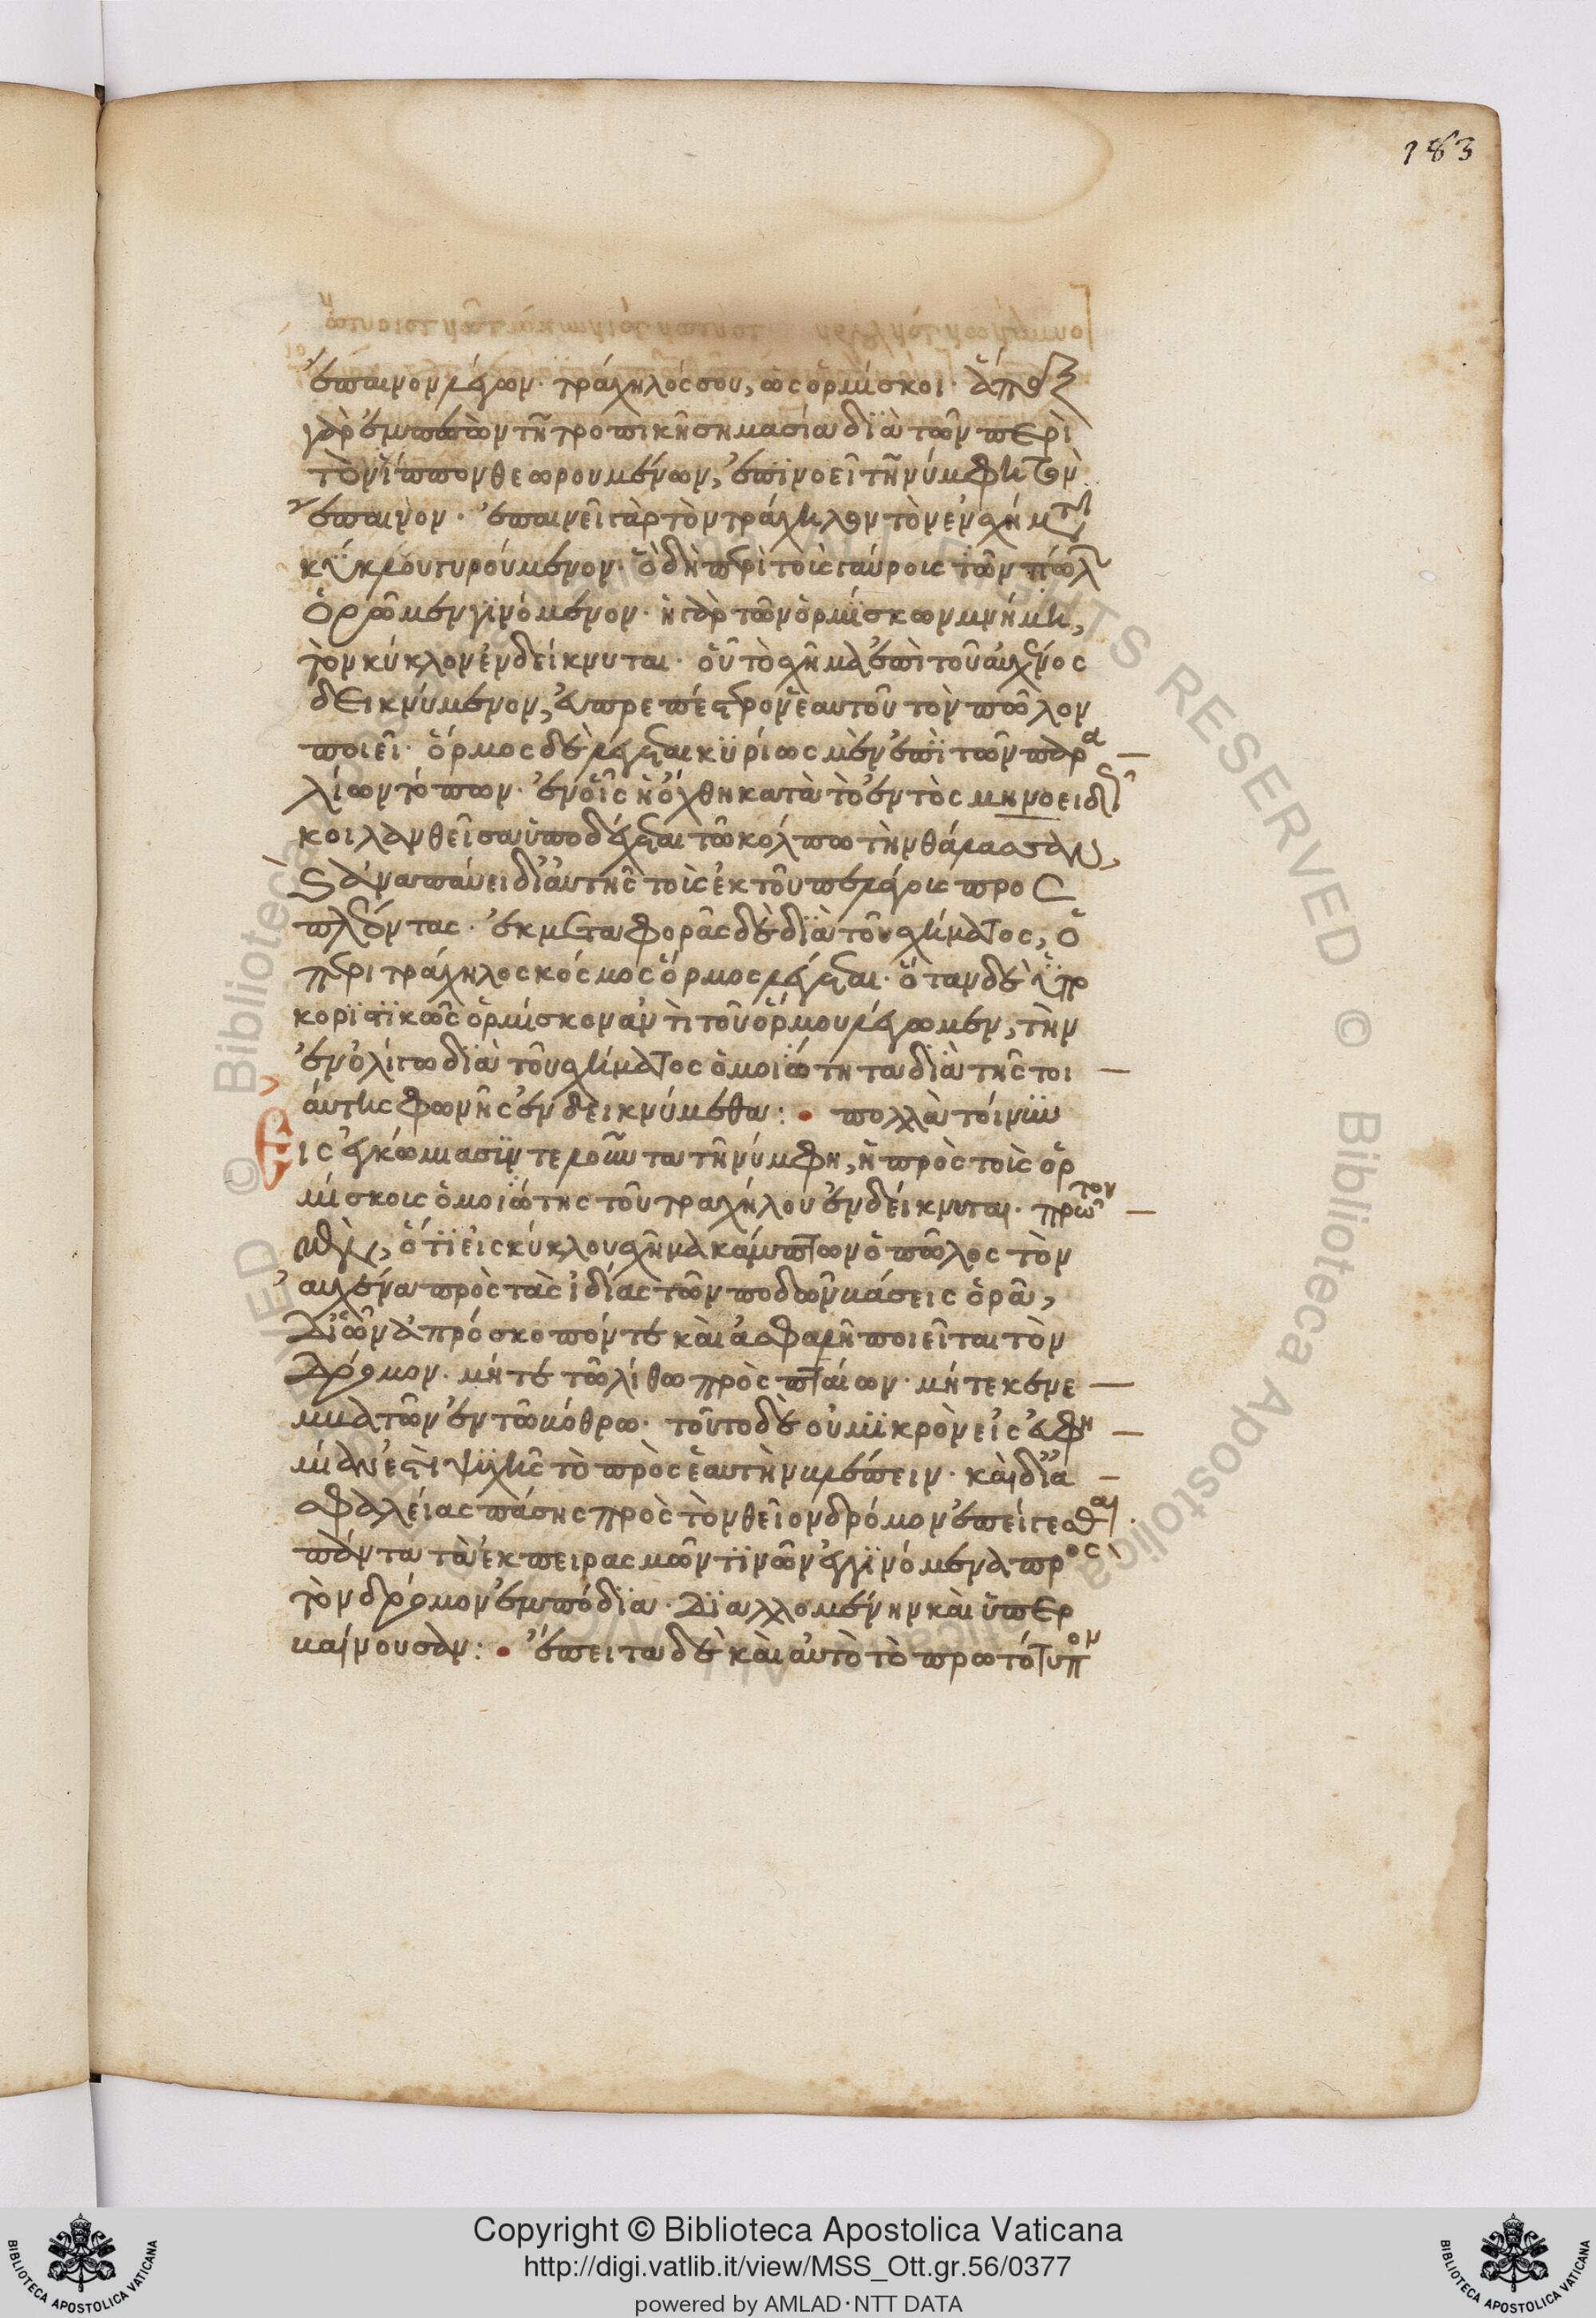 183
ἔπαινον λέγων· τράχηλός σου, ὡς ὁρμίσκοι·
γὰρ ἐμπιπτὼν τῆ τροπικῆ σημασία διὰ τῶν περὶ
τὸν ἵππον θεωρουμένων, ἐπινοεῖ τῆ νύμφη τὸν
ἔπαινον· ἐπαινεῖ γὰρ τὸν τράχηλον τὸν ἐν σχήματι
κύκλου γυρούμενον· ὃ δὴ περὶ τοὺς γαύρους τῶν πώλ
ὁρῶμεν γινόμενον· ἡ γὰρ τῶν ὁρμίσκων μνήμη,
τὸν κύκλον ἐνδείκνυται· οὗ τὸ σχῆμα ἐπὶ τοῦ αὐχένος
δεικνύμενον, εὐπρεπέστερον ἑαυτοῦ τὸν πῶλον
ποιεῖ· ὅρμος δὲ λέγεται κυρίως μὲν ἐπὶ τῶν παρα
λίων τόπων· ἐν οἷς ἡ ὄχθη κατὰ τὸ ἐντὸς μηνοειδῶς
κοιλανθεῖσα ὑποδέχεται τῶ κόλπω τὴν θάλασσαν,
καὶ ἀναπαύει δι' αὐτῆς τοὺς ἐκ τοῦ πελάγους προσ
πλέοντας· ἐκ μεταφορᾶς δὲ διὰ τοῦ σχήματος, ὁ
περιτράχηλος κόσμος ὅρμος λέγεται· ὅταν δὲ ὑπο
κοριστικῶς ὁρμίσκον ἀντὶ τοῦ ὅρμου λέγωμεν, τὴν
ἐν ὀλίγω διὰ τοῦ σχήματος ὁμοιότητα διὰ τῆς τοι
αύτης φωνῆς ἐνδεικνύμεθα: • πολλὰ τοίνυν
Εἰς ἐγκώμιασιν τελοῦντα τῆ νύμφη, ἡ πρὸς τοὺς ὁρ
μίσκους ὁμοιότης τοῦ τραχήλου ἐνδείκνυται· πρῶτον
μὲν, ὅτι εἰς κύκλου σχῆμα κάμπτων ὁ πῶλος τὸν
αὐχένα πρὸς τὰς ἰδίας τῶν ποδῶν βάσεις ὁρᾶ,
δι' ὧν ἀπρόσκοπόν τε καὶ ἀσφαλῆ ποιεῖται τὸν
δρόμον· μήτε τῶ λίθω προσπταίων· μήτε κενε
μβατῶν ἐν τῶ βόθρω· τοῦτο δὲ οὐ μικρὸν εἰς εὐφη
μίαν ἐστὶ ψυχῆς τὸ πρὸς ἑαυτὴν βλέπειν· καὶ διὰ
ἀσφαλείας πάσης πρὸς τὸν θεῖον δρόμον ἐπείγεσθαι·
πάντα τὰ ἐκ πειρασμῶν τινῶν ἐγγινόμενα πρὸς
τὸν δρόμον ἐμπόδια· διαλλομένην καὶ ὑπερ
βαίνουσαν: • ἔπειτα δὲ καὶ αὐτὸ τὸ πρωτότυπον
Copyright © Biblioteca Apostolica Vaticana
http://digi.vatlib.it/view/MSS_Ott.gr.56/0377
powered by AMLAD·NTT DATA